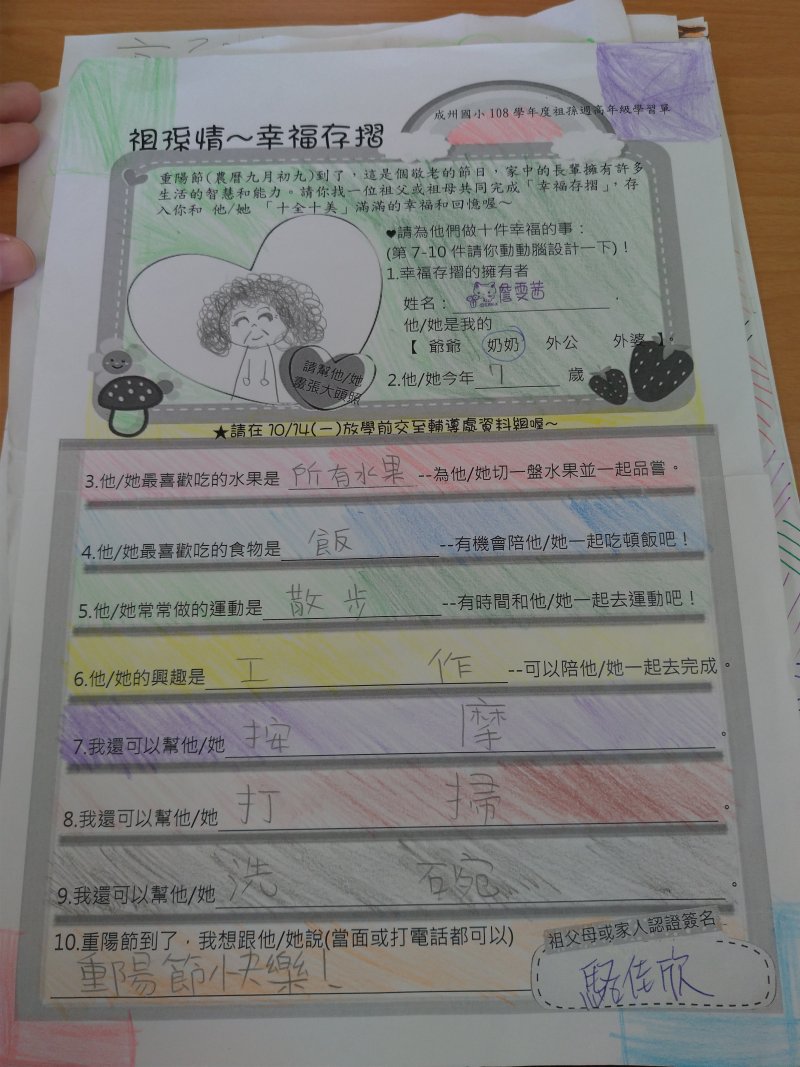 成州國小 108 學年度祖孫週高年級學習單
祖孫情～幸福存摺
重陽節(農曆九月初九)到了，這是個敬老的節日，家中的長輩擁有許多
生活的智慧和能力。請你找一位祖父或祖母共同完成「幸福存摺」，存
入你和 他/她 「十全十美」滿滿的幸福和回憶喔～
♥請為他們做十件幸福的事：
(第 7-10 件請你動動腦設計一下)！
1.幸福存摺的擁有者
姓名：詹雯茜．
他/她是我的
【 爺爺 奶奶 外公 外婆 】。
請幫他/她
畫張大頭照
2.他/她今年 7 歲
★請在 10/14(一)放學前交至輔導處資料組喔～
3.他/她最喜歡吃的水果是 所有水果 --為他/她切一盤水果並一起品嘗。
4.他/她最喜歡吃的食物是 飯 --有機會陪他/她一起吃頓飯吧！
5.他/她常常做的運動是 散步 --有時間和他/她一起去運動吧！
6.他/她的興趣是 工作 --可以陪他/她一起去完成。
7.我還可以幫他/她 按摩。
8.我還可以幫他/她 打掃。
9.我還可以幫他/她 洗碗。
10.重陽節到了，我想跟他/她說(當面或打電話都可以)
重陽節快樂！
祖父母或家人認證簽名
駱佳欣